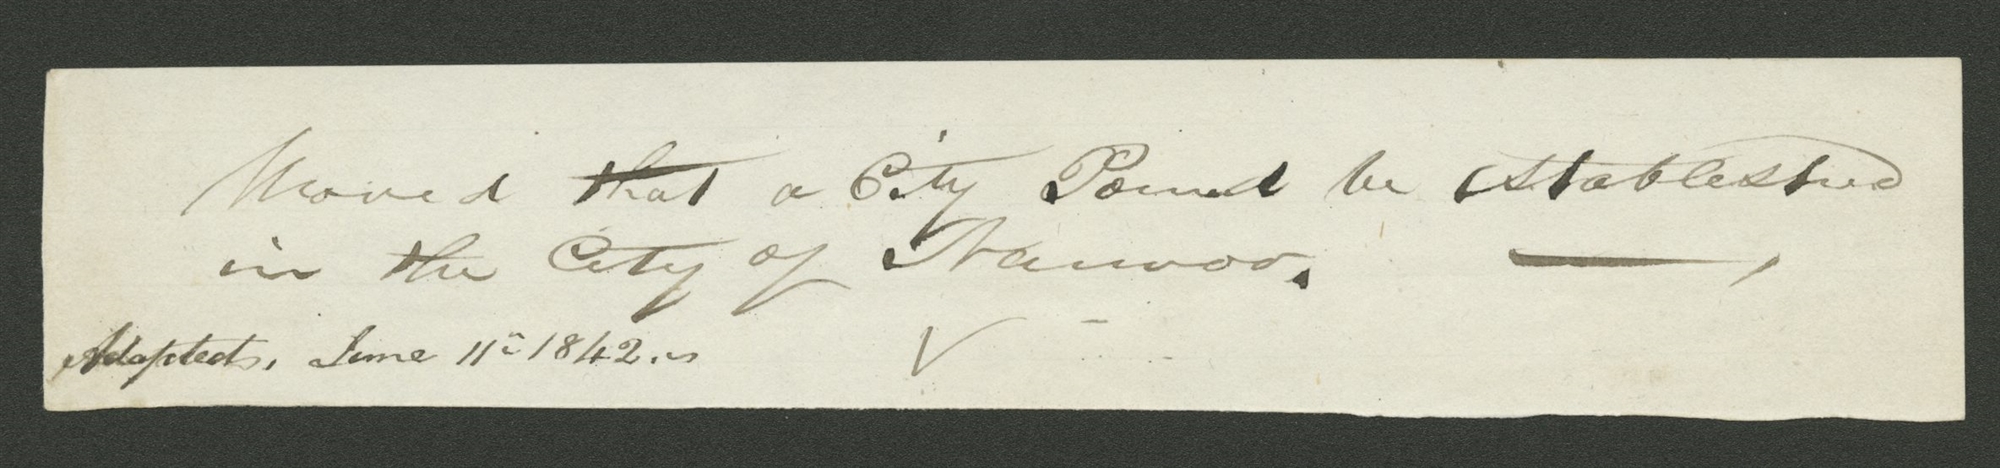 Moved that a City Pound be established
in the City of Nauvoo. —
Adopted, June 11th 1842.